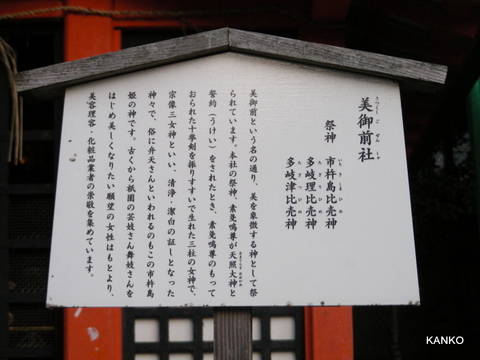 美御前社
うつくしごぜんしゃ
祭神
市杵島比売神
いちきしまひめ
多岐理比売神
たぎりひめ
多岐津比売神
たぎつひめ
美御前という名の通り、美を象徴する神として祭
られています。本社の祭神、素戔嗚尊が天照大神と
誓約（うけい）をされたとき、素戔嗚尊のもって
おられた十拳剣を振りすすいで生れた三柱の女神で、
宗像三女神といい、清浄・潔白の証しとなった
神々で、俗に弁天さんといわれるのもこの市杵島
姫の神です。古くから祇園の芸妓さん舞妓さんを
はじめ美しくなりたい願望の女性はもとより、
美容理容・化粧品業者の崇敬を集めています。
KANKO